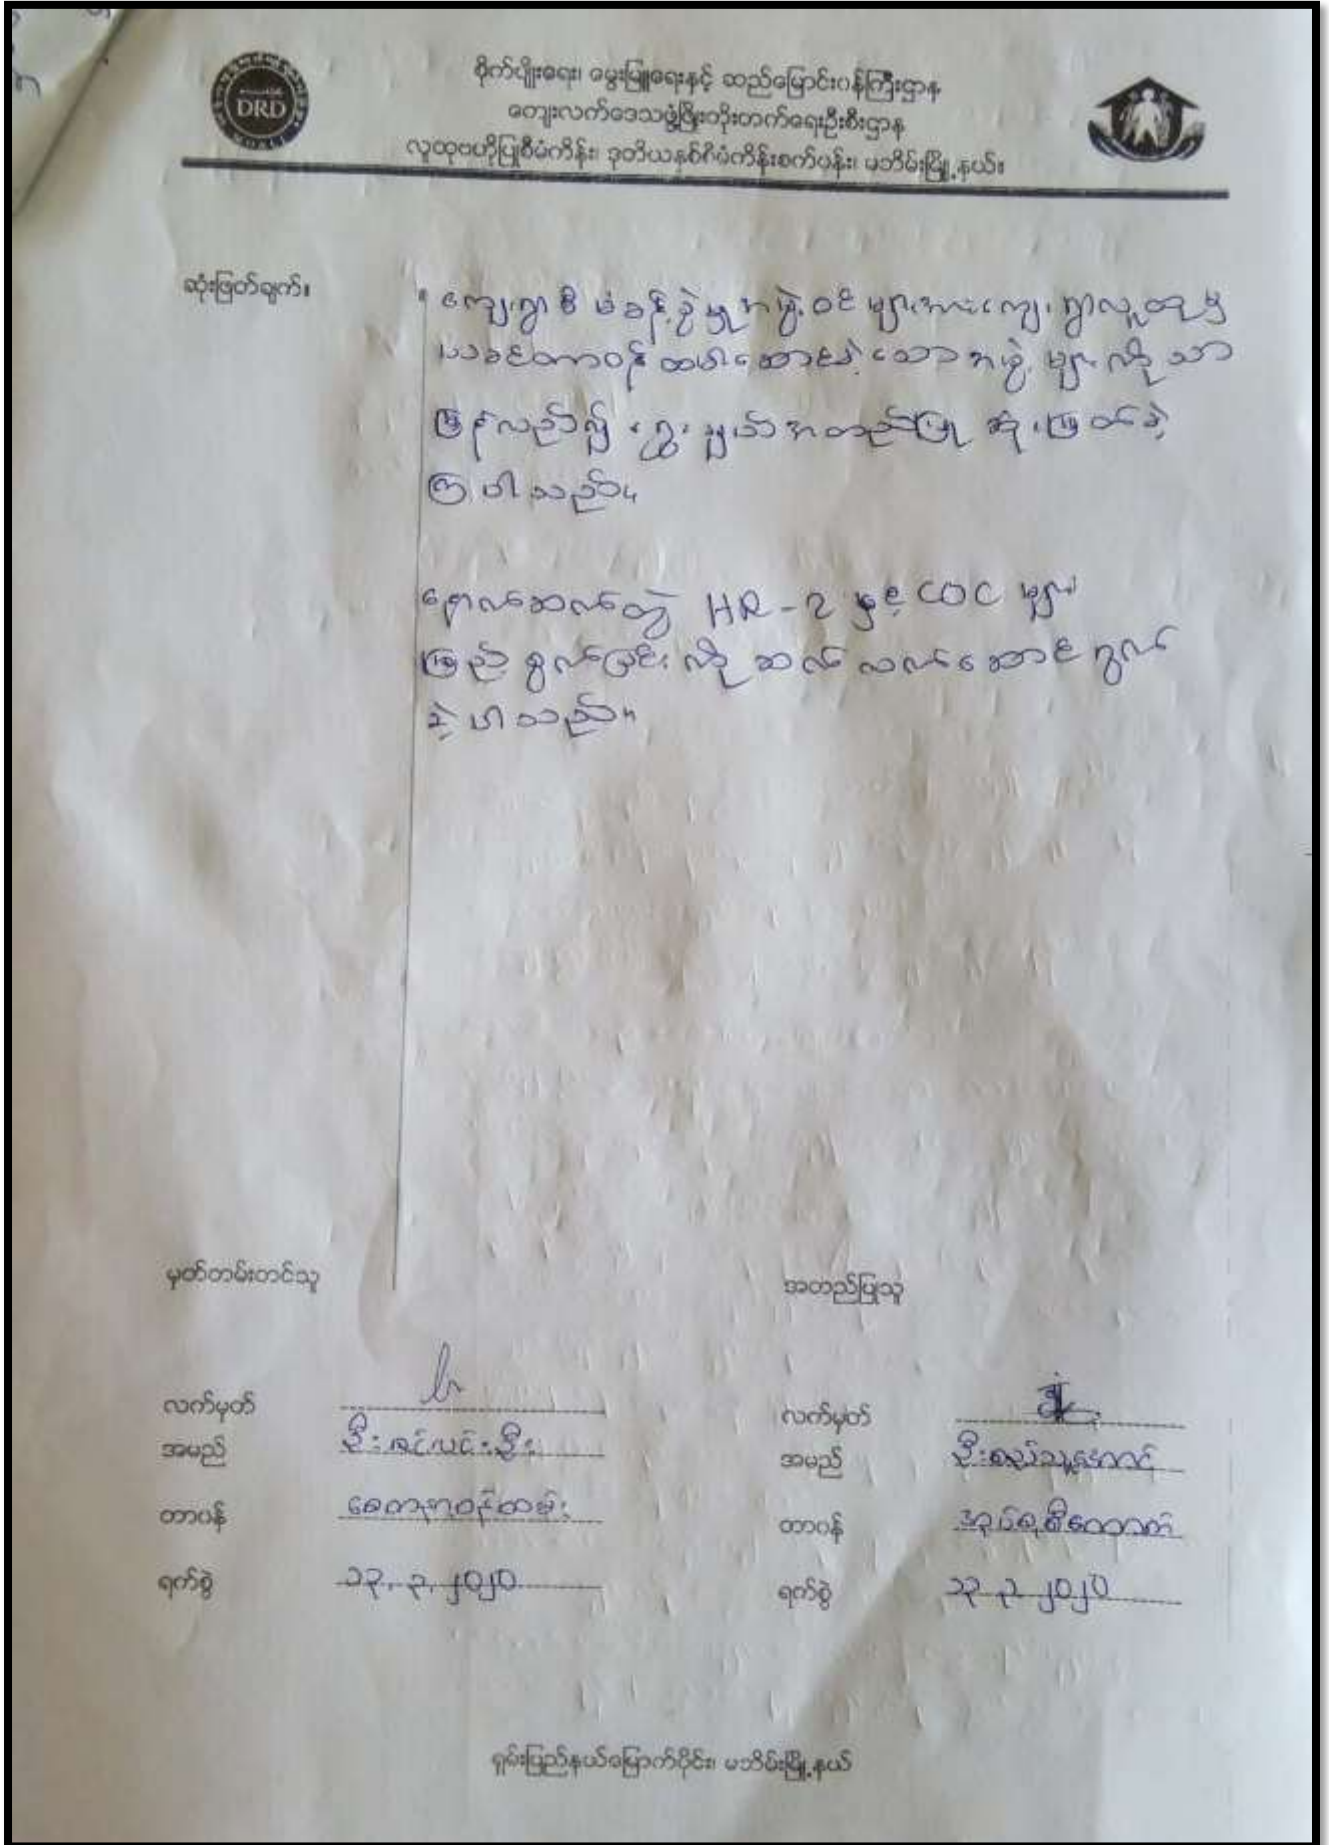 DRD
စိုက်ပျိုးရေး၊ မွေးမြူရေးနှင့် ဆည်မြောင်းဝန်ကြီးဌာန
ကျေးလက်ဒေသဖွံ့ဖြိုးတိုးတက်ရေးဦးစီးဌာန
လူထုဗဟိုပြုစီမံကိန်း၊ ဒုတိယနှစ်စီမံကိန်းစက်ဝန်း၊ မဘိမ်းမြို့နယ်။
ဆုံးဖြတ်ချက်။
။ ကျေးရွာစီမံခန့်ခွဲမှုအဖွဲ့ဝင်များအားကျေးရွာလူထုမှ
ယခင်တာဝန်ထမ်းဆောင်ခဲ့သောအဖွဲ့များကိုသာ
ပြန်လည်၍ ရွေးချယ်အတည်ပြု ဆုံးဖြတ်ခဲ့
ကြပါသည်။
နောက်ဆက်တွဲ HR-2 နှင့် COC များ
ဖြည့်စွက်ခြင်းကို ဆက်လက်ဆောင်ရွက်
ခဲ့ပါသည်။
မှတ်တမ်းတင်သူ
အတည်ပြုသူ
လက်မှတ်
အမည် ဦးခင်မင်းဦး
တာဝန် စေတနာ့ဝန်ထမ်း
ရက်စွဲ ၁၃.၃.၂၀၂၀
လက်မှတ်
အမည် ဦးစည်သူအောင်
တာဝန် အုပ်စု
ရက်စွဲ ၁၃.၃.၂၀၂၀
ရှမ်းပြည်နယ်မြောက်ပိုင်း၊ မဘိမ်းမြို့နယ်